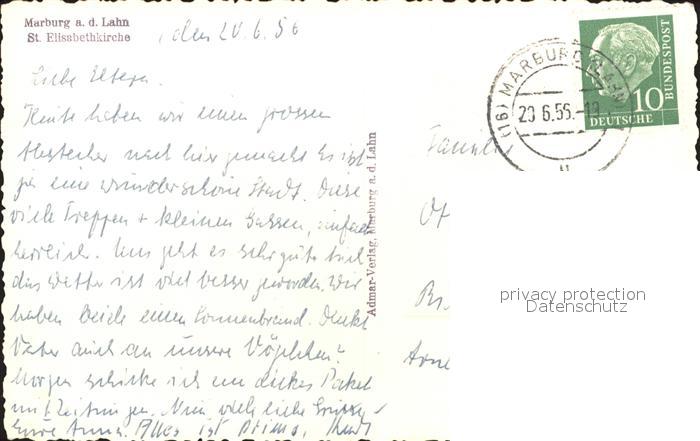 Marburg a. d. Lahn
St. Elisabethkirche
, den 20.6.56
Liebe Eltern.
Heute haben wir einen grossen
Abstecher nach hier gemacht Es ist
ja eine wunderschöne Stadt. Diese
viele Treppen + kleinen Gassen, einfach
herrlich. Uns geht es sehr gut auch
das Wetter ist viel besser geworden. Wir
haben beide einen Sonnenbrand. Denkt
Vater auch an unsere Vögelchen?
Morgen schicke ich ein dickes Paket
mit Zeitungen. Nun viele liebe Grüsse
Eure Anna. Alles ist prima,
Admar-Verlag, Marburg a. d. Lahn
(16) MARBURG (LAHN
20.6.56.-19
u
DEUTSCHE
BUNDESPOST
10
Familie
privacy protection
Datenschutz